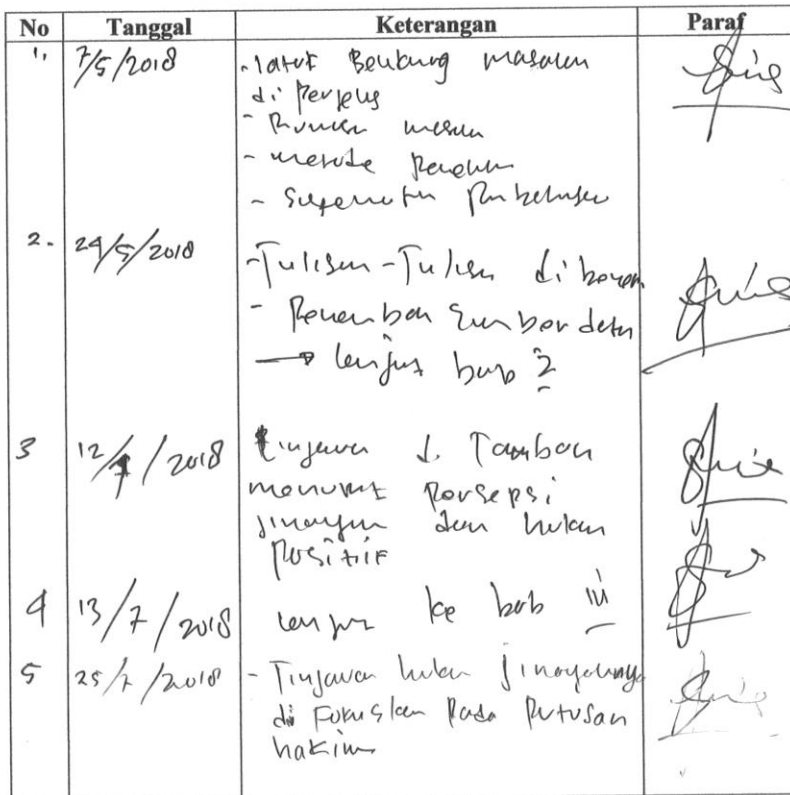 No Tanggal Keterangan Paraf
1. 7/5/2018 - latar Belakang masalah
di perjelas
- Rumusan masalah
- metode
- Sistematika Pembahasan
2. 24/5/2018
- Tulisan - Tulisan di
- Penambahan Sumber data
→ lanjut bab 2
3 12/7/2018 tinjauan di Tambah
menurut Persepsi
jinayah dan hukum
Positif
4 13/7/2018 lanjut ke bab III
5 25/7/2018 - Tinjauan hukum jinayahnya
di Fokuskan Pada Putusan
hakim